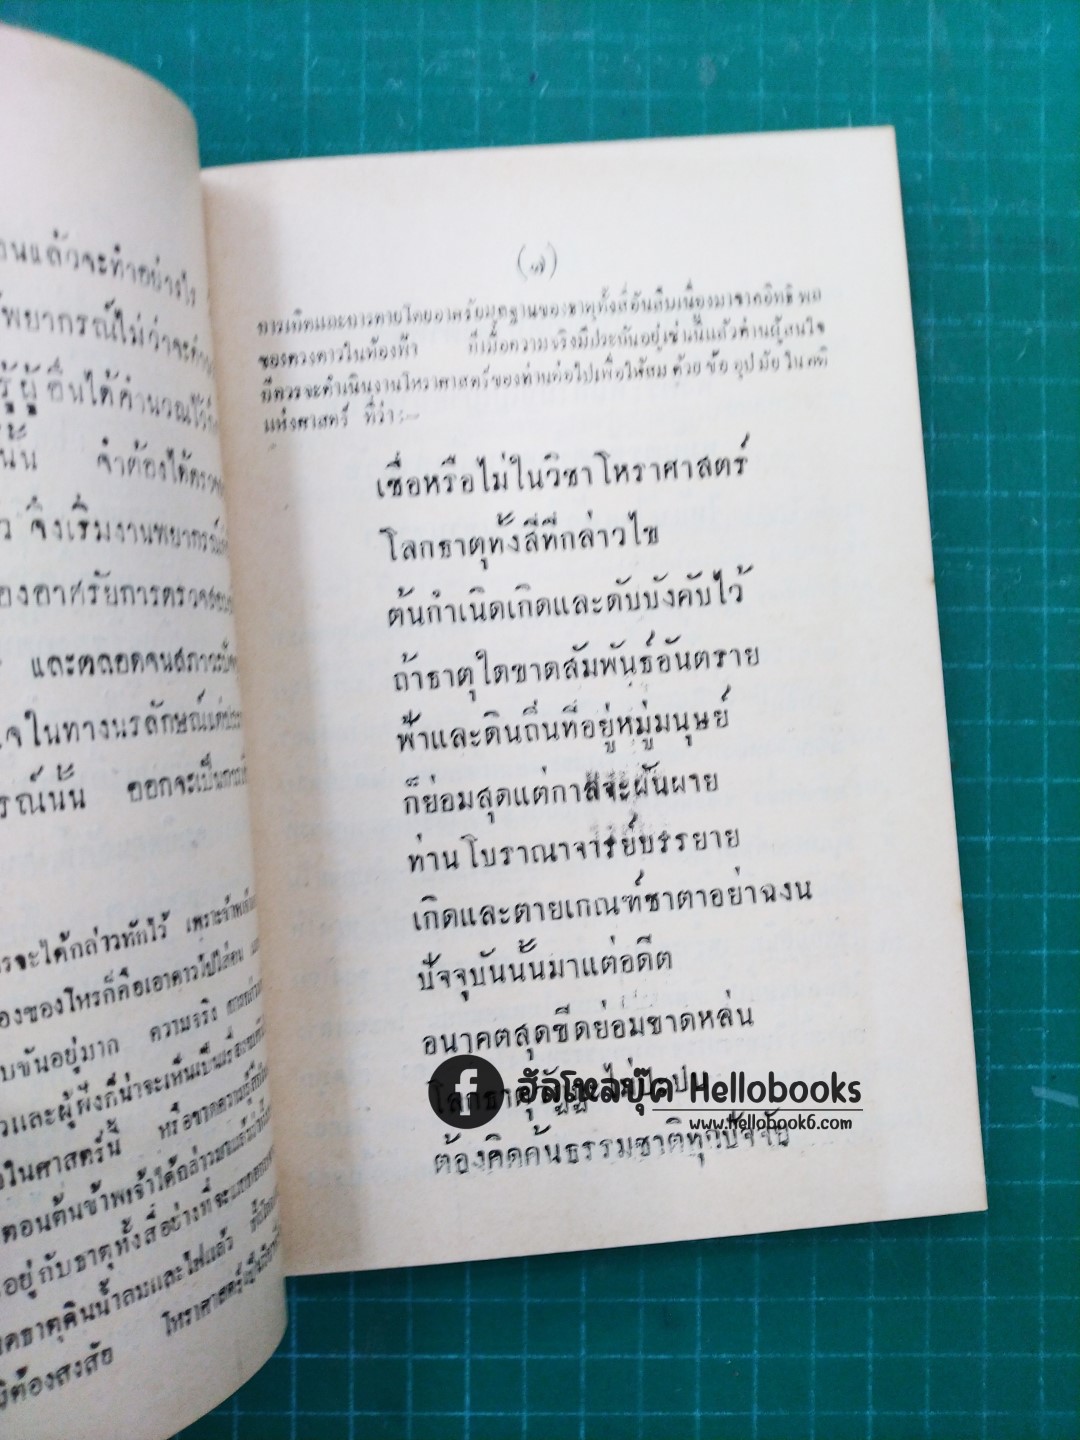 งนแล้วจะทำอย่างไร
พยากรณ์ไม่ว่าจะ
รู้ผู้อื่นได้คำนวณไว้
นั้น จำต้องได้ตรวจ
จึงเริ่มงานพยากรณ์
องอาศรัยการตรวจสอบ
และตลอดจนสภาวะ
ใจในทางนรลักษณ์แต่
รณ์นั้น ออกจะเป็นการ
รจะได้กล่าวทักไว้ เพราะ
องของโหรก็คือเอาดาวไปใส่
บขันอยู่มาก ความจริง
วและผู้ฟังก็น่าจะเห็นเป็นเรื่อง
วในศาสตร์นี้ หรือขาดความ
ตอนต้นข้าพเจ้าได้กล่าวมาแล้วว่า
อยู่กับธาตุทั้งสี่อย่างที่จะแตก
ธาตุดินน้ำลมและไฟแล้ว
มิต้องสงสัย โหราศาสตร์เป็น
(๗)
การเกิดและการตายโดยอาศรัยมูลฐานของธาตุทั้งสี่อันสืบเนื่องมาจากอิทธิพล
ของดวงดาวในท้องฟ้า ก็เมื่อความจริงมีประกันอยู่เช่นนี้แล้วท่านผู้สนใจ
ก็ควรจะดำเนินงานโหราศาสตร์ของท่านต่อไปเพื่อให้สมด้วยข้ออุปมัยในคติ
แห่งศาสตร์ ที่ว่า:–
เชื่อหรือไม่ในวิชาโหราศาสตร์
โลกธาตุทั้งสี่ที่กล่าวไข
ต้นกำเนิดเกิดและดับบังคับไว้
ถ้าธาตุใดขาดสัมพันธ์อันตราย
ฟ้าและดินถิ่นที่อยู่หมู่มนุษย์
ก็ย่อมสุดแต่กาลจะผันผาย
ท่านโบราณาจารย์บรรยาย
เกิดและตายเกณฑ์ชาตาอย่าฉงน
ปัจจุบันนั้นมาแต่อดีต
อนาคตสุดขีดย่อมขาดหล่น
โลกธาตุ
ต้องคิดค้นธรรมชาติทุกปัจจัย
f ฮัลโหลบุ๊ค Hellobooks
www.hellobook6.com